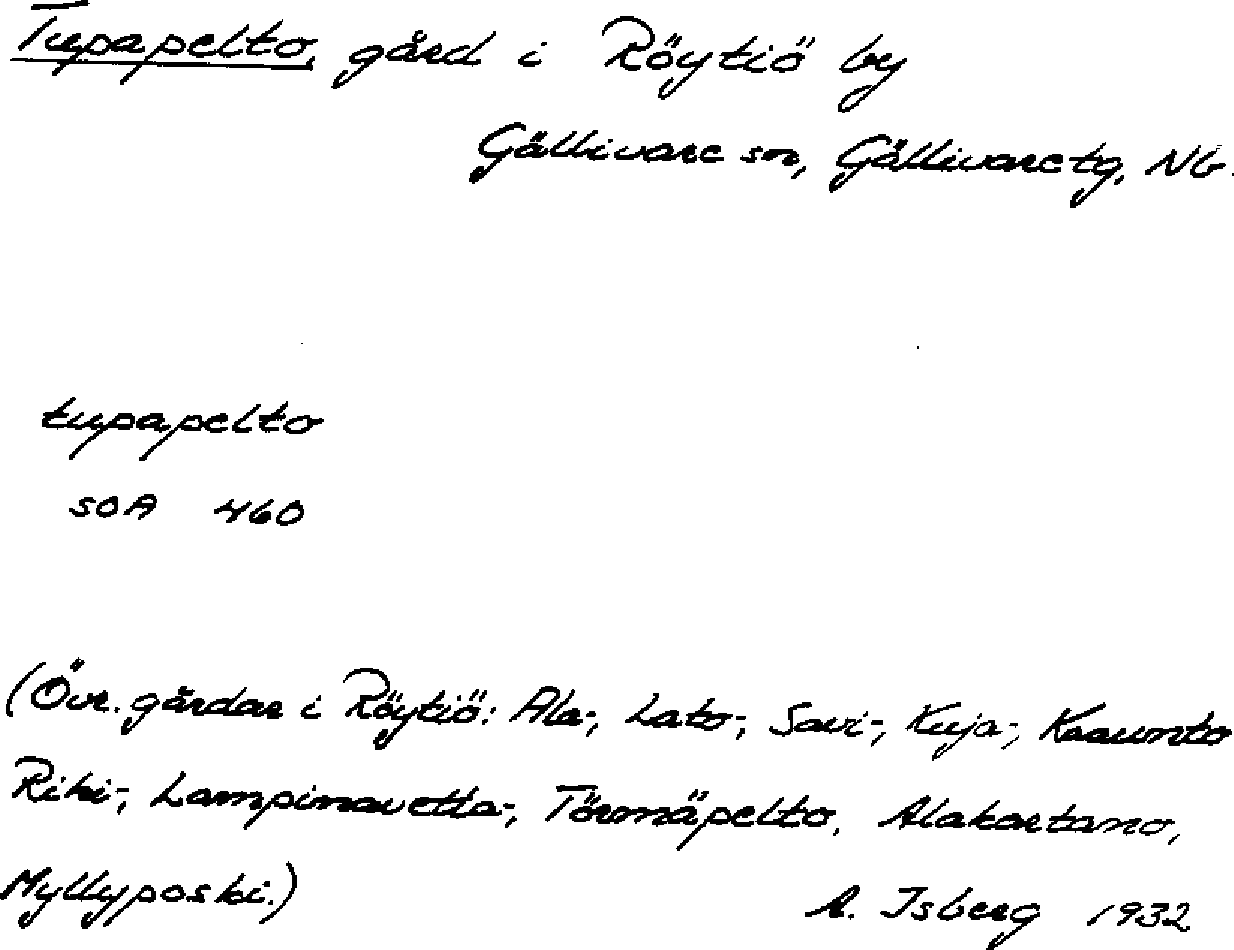 Tupapelto, gård i Röytiö by
Gällivare sn, Gällivare tg, Nb.
tupapelto
SOA 460
(Övr. gårdar i Röytiö: Ala-, Lato-, Savi-, Kuja-,
Rihi-, Lampinavetta-, Törmäpelto, Alakartano,
Myllyposki.)
A. Isberg 1932